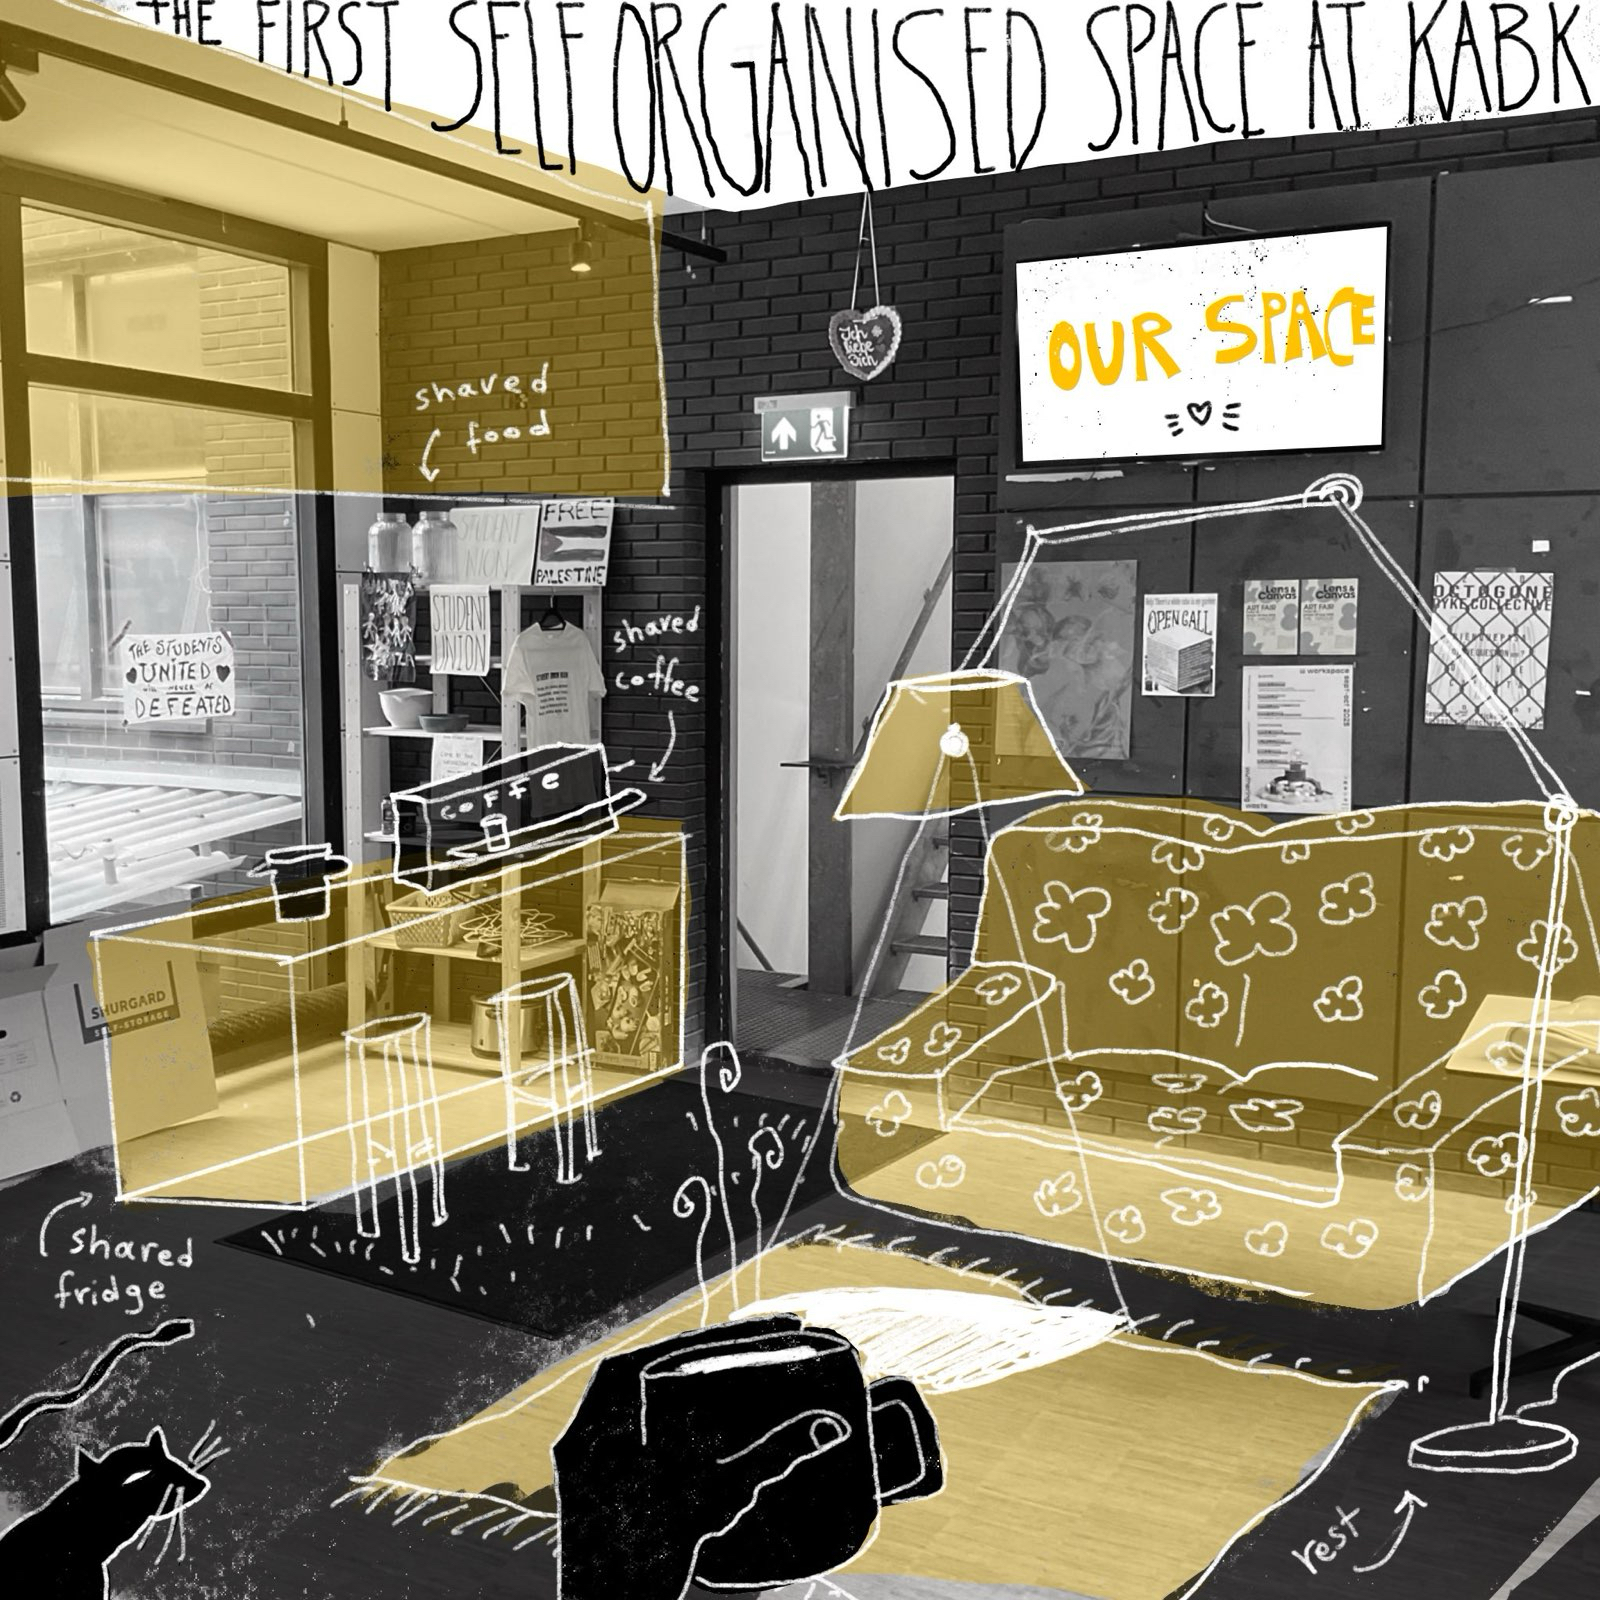 THE FIRST SELF ORGANISED SPACE AT KABK
OUR SPACE
Ich
liebe
Dich
shared
food
STUDENT
UNION
FREE
PALESTINE
STUDENT
UNION
shared
coffee
THE STUDENTS
UNITED
will NEVER be
DEFEATED
OPEN CALL
Lens &
Canvas
ART FAIR
Lens &
Canvas
ART FAIR
OCTOGONE
DYKE COLLECTIVE
workspace
waste
COFFE
SHURGARD
SELF-STORAGE
shared
fridge
rest